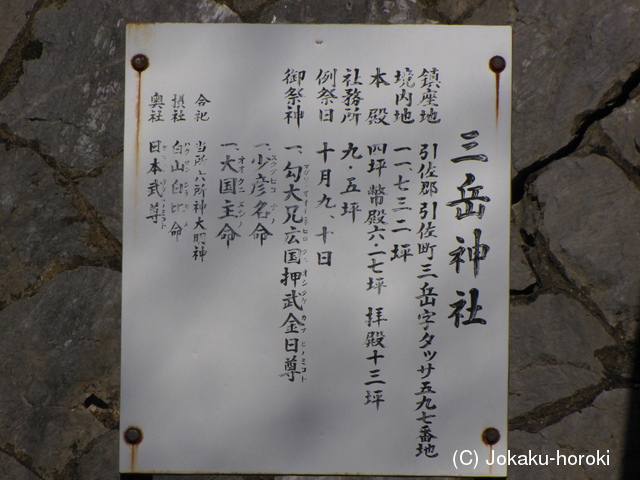 三岳神社
鎮座地 引佐郡引佐町三岳字タッサ五九七番地
境内地 一一、七三二坪
本殿 四坪 幣殿六・一七坪 拝殿十三坪
社務所 九・五坪
例祭日 十月九、十日
御祭神 一、勾大兄広国押武金日尊
一、少彦名命
一、大国主命
合祀 当所六所神大明神
摂社 白山白比命
奥社 日本武尊
(C) Jokaku-horoki